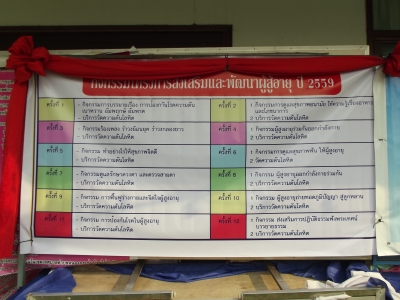 กิจกรรมการส่งเสริมและพัฒนาผู้สูงอายุ ปี 2559
ครั้งที่ 1
- กิจกรรมการบรรยายเรื่อง การป้องกันโรคความดัน
เบาหวาน อัมพฤกษ์ อัมพาต
- บริการวัดความดันโลหิต
ครั้งที่ 2
1 กิจกรรมการดูแลสุขภาพอนามัย ให้ความรู้เรื่องอาหาร
และโภชนาการ
2 บริการวัดความดันโลหิต
ครั้งที่ 3
- บริการวัดความดันโลหิต
ครั้งที่ 4
1 กิจกรรมผู้สูงอายุร่วมกันออกกำลังกาย
2 บริการวัดความดันโลหิต
ครั้งที่ 5
- กิจกรรม ทำอย่างไรให้สุขภาพจิตดี
- บริการวัดความดันโลหิต
ครั้งที่ 6
1 กิจกรรมการดูแลสุขภาพฟัน ให้ผู้สูงอายุ
2 วัดความดันโลหิต
ครั้งที่ 7
- กิจกรรมดูแลรักษาดวงตา และตรวจสายตา
- บริการวัดความดันโลหิต
ครั้งที่ 8
1 กิจกรรม ผู้สูงอายุออกกำลังกายร่วมกัน
2 บริการวัดความดันโลหิต
ครั้งที่ 9
- กิจกรรม การฟื้นฟูร่างกายและจิตใจผู้สูงอายุ
- บริการวัดความดันโลหิต
ครั้งที่ 10
1 กิจกรรม ผู้สูงอายุถ่ายทอดภูมิปัญญา สู่ลูกหลาน
2 บริการวัดความดันโลหิต
ครั้งที่ 11
- กิจกรรม การป้องกันโรคในผู้สูงอายุ
- บริการวัดความดันโลหิต
ครั้งที่ 12
1 กิจกรรม ส่งเสริมการปฏิบัติธรรมฟังพระเทศน์
บรรยายธรรม
2 บริการวัดความดันโลหิต